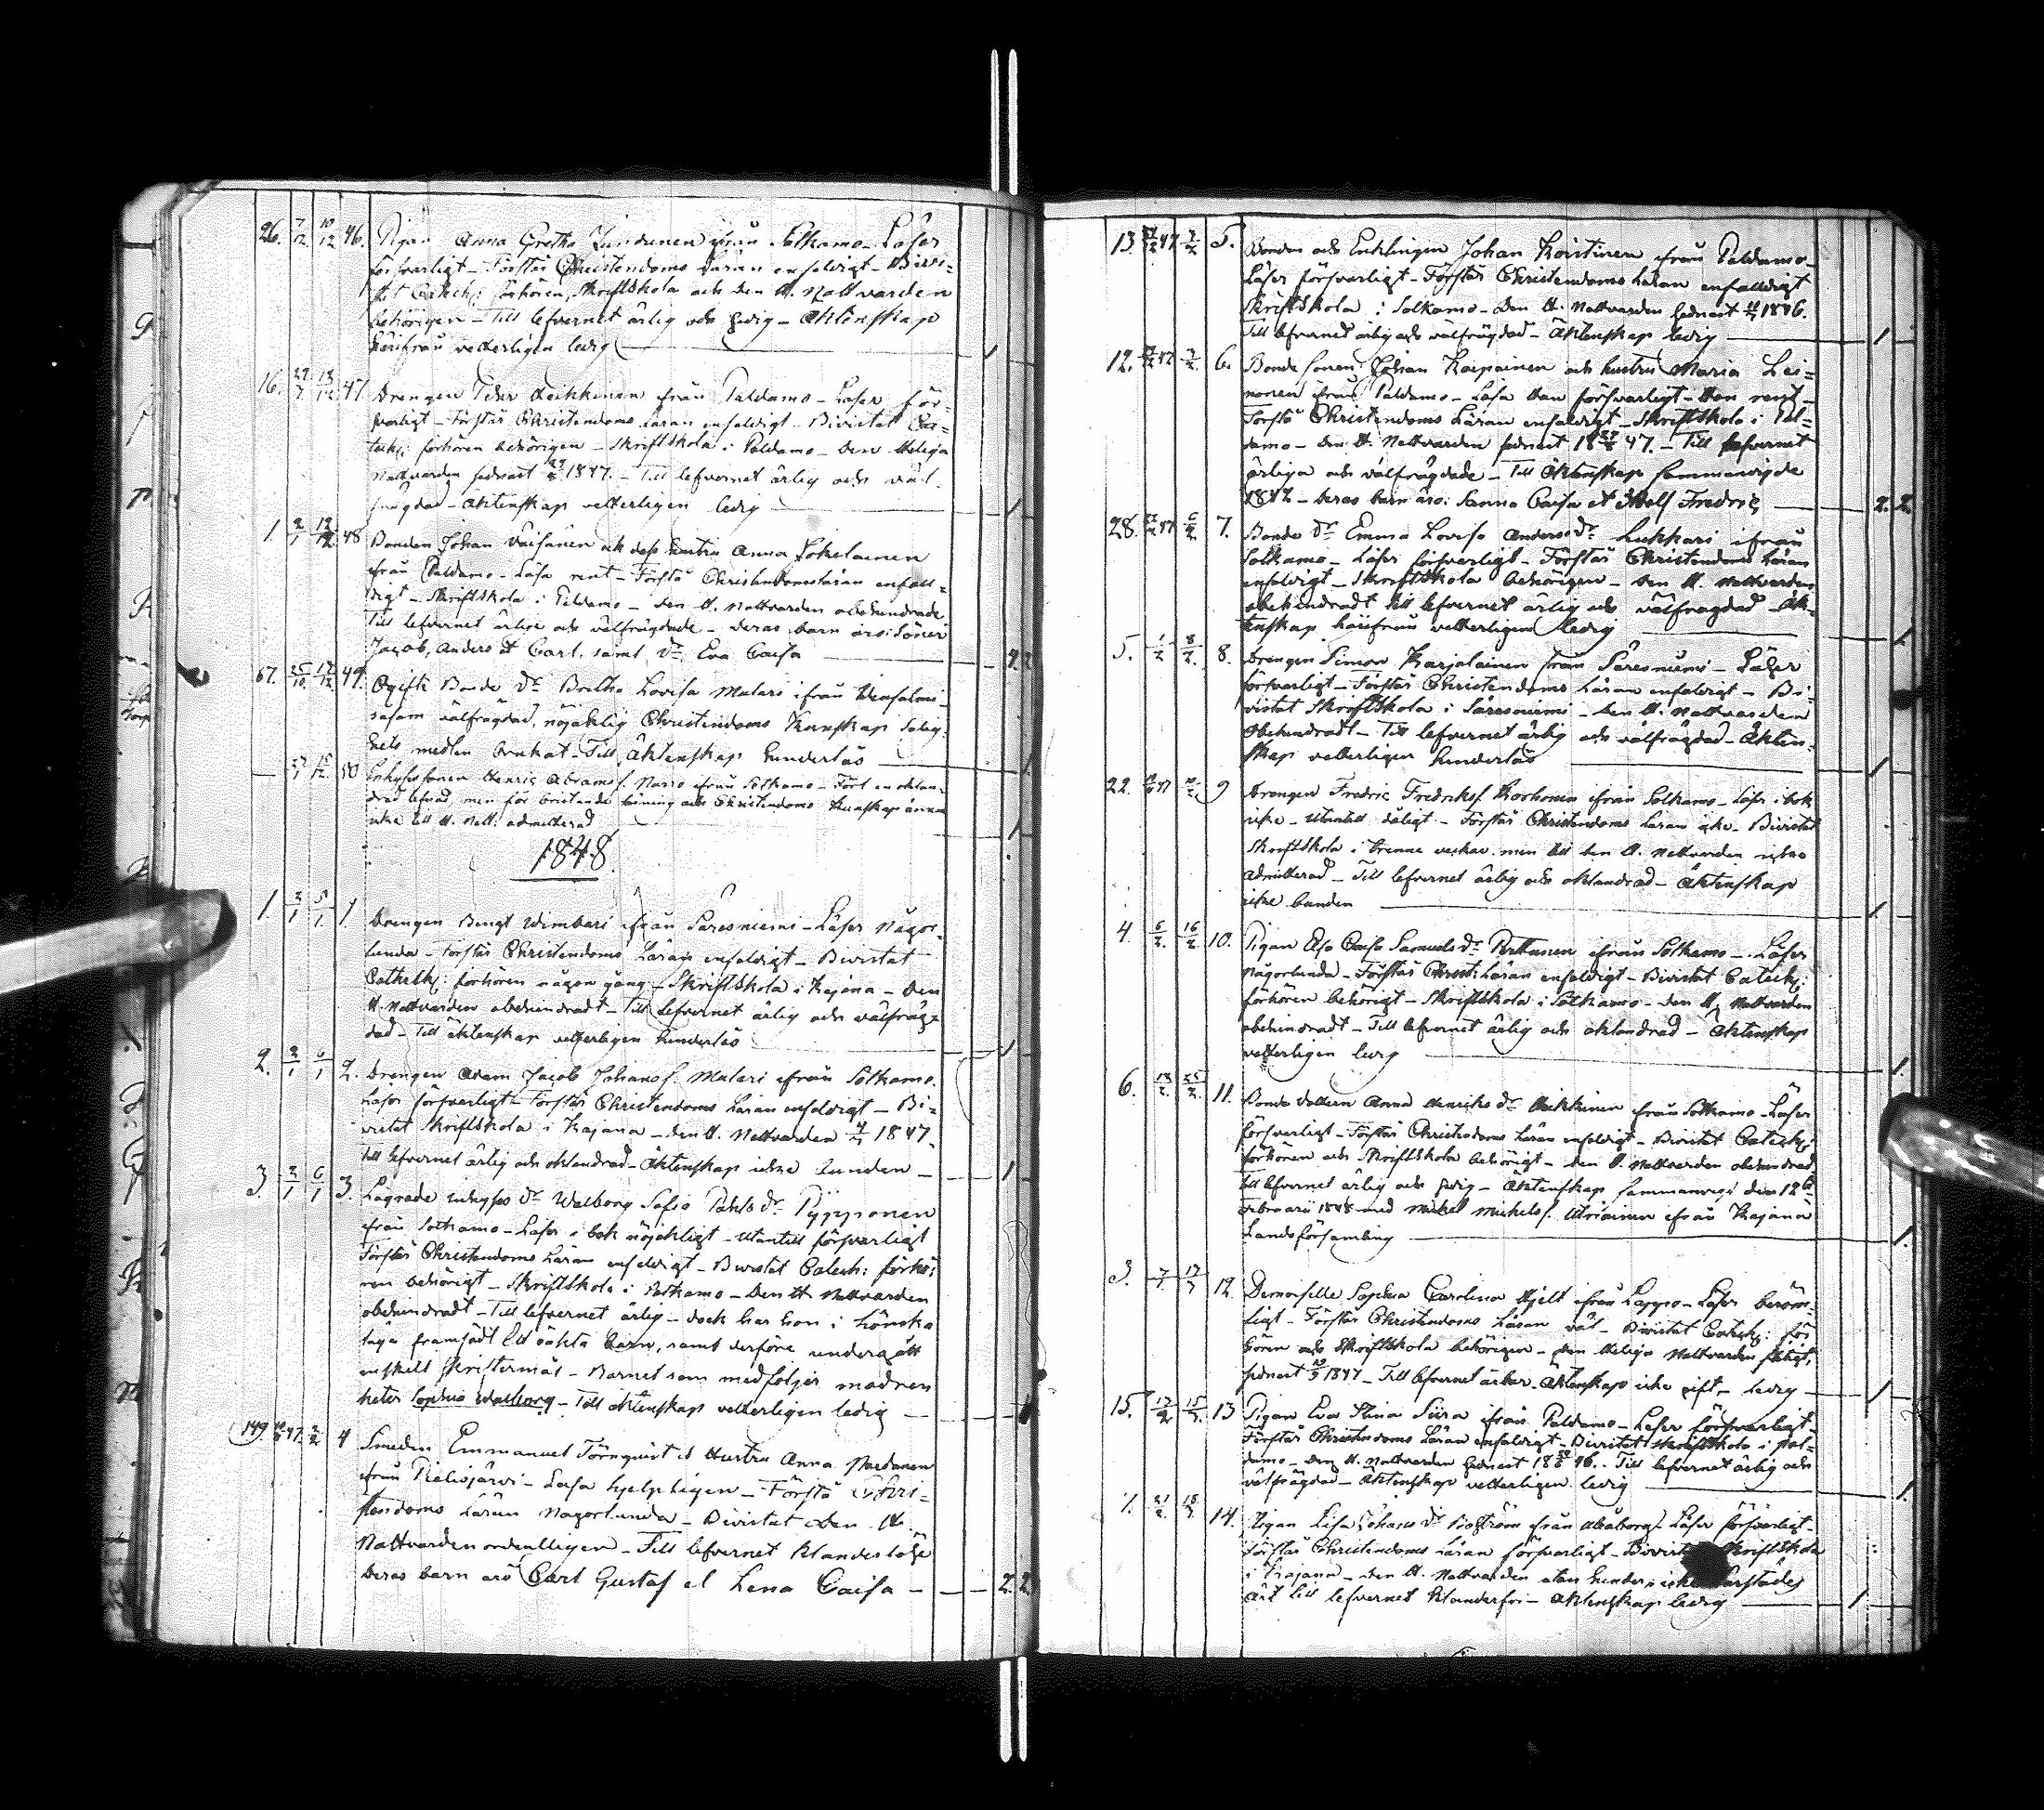 26. 7/12 10/12 46. Pigan Anna Gretha Lundunen ifrån Sotkamo - Läser
försvarligt - Förstår Christendoms Läran enfaldigt - Bivi=
stat Catech: förhören, Skriftskola och den H. Nattvarden
behörigen - Till lefvernet ärlig och - Äktenskap
härifrån vetterligen ledig
16. 47. Drengen Petter Heikkinen från Paldamo - Läser för=
svarligt - Förstår Christendoms Läran enfaldigt - Bivistat Ca=
tech: förhören behörigen - Skriftskola i Paldamo - Den Heliga
Nattvarden sednast 1847. - Till lefvernet ärlig och väl
frägdad - Äktenskap vetterligen ledig 1
1. 2/1 48 Bonden Johan Väisänen och dess hustru Anna Jokelainen
ifrån Paldamo - Läsa rent - Förstå Christendomsläran enfall=
digt - Skriftskola i Paldamo - den H. Nattvarden obehindrade
Till lefvernet ärliga och välfrägdade - deras barn äro: Söner
Jacob, Anders et Carl, samt Dr Eva Caisa
67. 25/10 17/12 49. Ogifta Bonde Dr Bretha Lovisa Malari ifrån Idensalmi
såsom välfrägdad, nöjaktig Christendoms Kunskap Salig
hets medlen brukat - Till Äktenskap hinderlös 1
50 Inhysessonen Henric Abrahamsf. Nario ifrån Sotkamo - Fört en oklan=
drad lefnad, men för bristande läsning och Christendoms Kunskap ännu
icke till H. Natt: admitterad 1
1848.
1. 3/1 5/1 1. Drengen Bengt Wimbari ifrån Säresniemi - Läser Någor=
lunda - Förstår Christendoms Läran enfaldigt - Bivistat
Cathelk: förhören någon gång - Skriftskola i Kajana - Den
H. Nattvarden obehindradt - Till lefvernet ärlig och välfräg=
dad - Till äktenskap vetterligen hinderlös 1
2. 3/1 5/1 2. Drengen Adam Jacob Johansf. Malari ifrån Sotkamo.
Läser försvarligt - Förstår Christendoms Läran enfaldigt - Bi=
vistat Skriftskola i Kajana - den H. Nattvarden 1847.
till lefvernet ärlig och oklandrad - Äktenskap icke bunden - 1
3. 3/1 6/1 3. Lägrade inhyses Dr Walborg Sofia Pahls Dr Pyyppönen
från Sotkamo - Läser i bok nöjaktigt - utantill försvarligt
Förstår Christendoms Läran enfaldigt - Bivistat Catech: förhö=
ren behörigt - Skriftskola i Sotkamo - Den H. Nattvarden
obehindradt - Till lefvernet ärlig - dock har hon i Lönska
läge framfödt Ett oäkta barn, samt derföre undergått
enskelt Skriftermål - Barnet som medföljer modren
heter Sophia Walborg - Till äktenskap vetterligen ledig
149. 47. 4 Smeden Emmanuel Törnqvist et Hustru Anna Nardanen
ifrån Pielisjärvi - Läsa hjelpligen - Förstå Chri=
stendoms Läran Någorlunda - Bivistat den H.
Nattvarden ordentligen - Till lefvernet Klanderlöse
Deras barn äro Carl Gustaf et Lena Caisa - 2. 2
13. 47 5. Bonden och Enklingen Johan Koistinen ifrån Paldamo -
Läser försvarligt - Förstår Christendoms Läran enfalldigt
Skriftskola i Sotkamo - Den H. Nattvarden sednast 1846.
Till lefvernet ärlig och välfrägdad - Äktenskap ledig 1
12. 47 6. Bonde sonen Johan Karpainen och hustru Maria Lei=
nonen ifrån Paldamo - Läsa Han försvarligt - Hon rent -
Förstå Christendoms Läran enfaldigt - Skriftskola i Pal=
damo - Den H. Nattvarden sednast 18 47. - Till lefvernet
ärliga och välfrägdade - Till Äktenskap sammanvigde
1842 - deras barn äro: Sanna Caisa et Adolf Fredric 2. 2.
28. 47 7. Bonde Dr Emma Lovisa Anders Dr Lukkari ifrån
Sotkamo - Läser försvarligt - Förstår Christendoms Läran
enfaldigt - Skriftskola behörigen - Den H. Nattvarden
obehindradt till lefvernet ärlig och välfrägdad - Äk=
tenskap härifrån vetterligen ledig 1
5. 1/2 8/2 8. Drengen Simon Karjalainen från Säresniemi - Läser
försvarligt - Förstår Christendoms Läran enfaldigt - Bi=
vistat Skriftskola i Säresniemi - Den H. Nattvarden
obehindradt - Till lefvernet ärlig och välfrägdad - Äkten=
skap vetterligen hinderlös 1
22. 47 9 Drengen Fredric Fredriksf. Korhonen ifrån Sotkamo - Läser i bok
icke - Utantill dåligt - Förstår Christendoms Läran icke - Bivistat
Skriftskola i trenne veckor, men till den H. Nattvarden
admitterad - Till lefvernet ärlig och oklandrad - Äktenskap
icke bunden 1
4. 6/2 16/2 10. Pigan Caisa Samuels Dr Pertunen ifrån Sotkamo - Läser
Någorlunda - Förstår Christ: Läran enfaldigt - Bivistat Catech:
förhören behörigt - Skriftskola i Sotkamo - Den H. Nattvarden
obehindradt - Till lefvernet ärlig och oklandrad - Äktenskap
vetterligen ledig 1.
6. 11. Bonde dottren Anna Henriks Dr Heikkinen från Sotkamo - Läser
försvarligt - Förstår Christendoms Läran enfaldigt - Bivistat Catech:
förhören och Skriftskola behörigt - Den H. Nattvarden obehindrad
till lefvernet ärlig och - Äktenskap sammanvigd den 12
Februarii 1848 med Mickel Mickelsf. Utriainen ifrån Kajana
Landsförsamling 1.
3. 7/3 12/3 12. Demoiselle Sophia Carolina Hjelt ifrån Lappo - Läser beröm=
ligt - Förstår Christendoms Läran väl - Bivistat Catech: för
hören och Skriftskola behörigen - Den Heliga Nattvarden flitigt,
sednast 1847 - Till lefvernet ärbar. Äktenskap icke gift, - ledig - 1
15. 13 Pigan Eva Stina Siira ifrån Paldamo - Läser försvarligt -
Förstår Christendoms Läran enfaldigt - Bivistat Skriftskola i Pal=
damo - Den H. Nattvarden sednast 18 46. - Till lefvernet ärlig och
välfrägdad - Äktenskap vetterligen ledig 1.
14. Pigan Lisa Johans Dr Boström från Uleåborg - Läser försvarligt -
Förstår Christendoms Läran försvarligt - Bivistat Skriftskola
i Kajana - Den H. Nattvarden utan hinder
Till lefvernet klanderfri - Äktenskap ledig 1